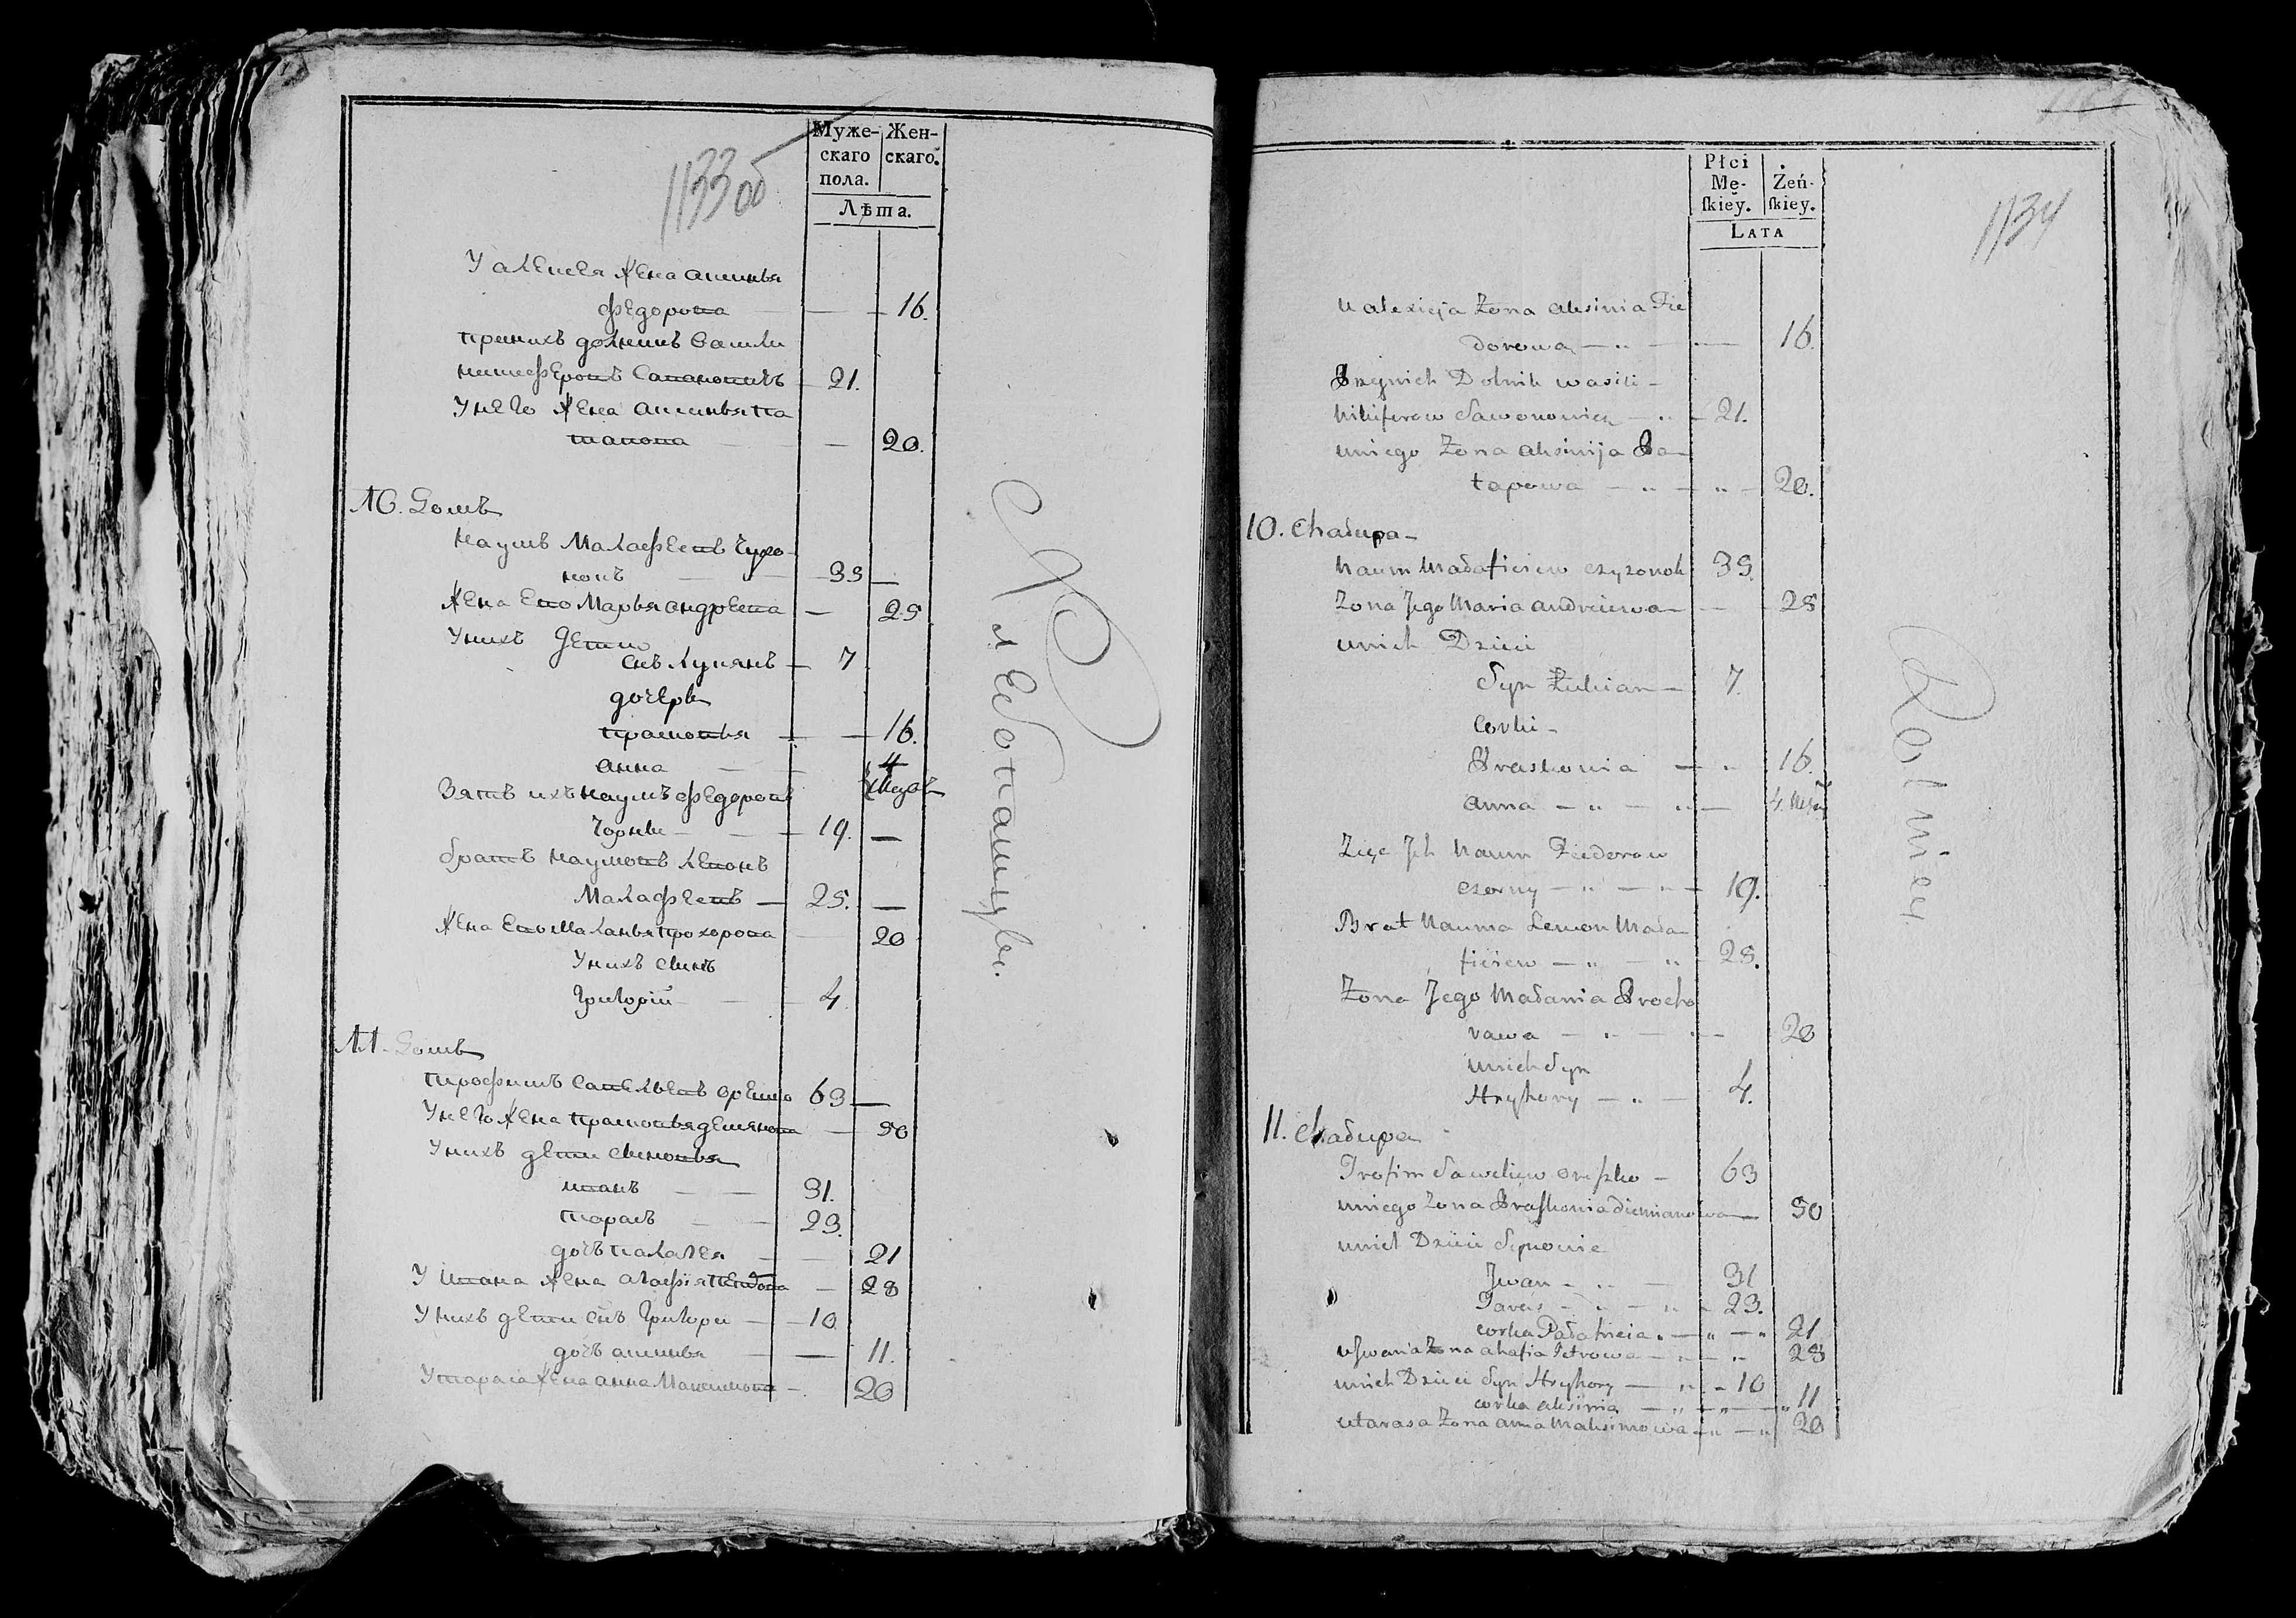 1133об
Муже- Жен-
скаго скаго.
пола.
Лѣта.
У алексея жена аксинья
федорова — — 16.
при нихъ долникъ василь
никиферовъ савоновичъ — 21.
у него жена аксинья па
тапова — — 20.
10. Домъ
Наумъ Малафеевъ
— 33 —
жена его Марья андреева — 25
у нихъ дети
снъ Лукянъ — 7
дочери
прасковья — — 16.
анна — — 4
зять ихъ наумъ федоровъ
чорны — — 19. —
братъ наумовъ левонъ
Малафеевъ — 25. —
жена его Маланья прохорова — 20
у нихъ сынъ
григорій — — 4
11. Домъ
трофимъ савельевъ орешко 63 —
у него жена прасковья демянова — 50
у нихъ дети сыновья
иванъ — — 31.
тарасъ — — 23.
дочъ палагея — — 21
у ивана жена агафія петрова — 28
у нихъ дети снъ григори — — 10
дочъ аксинья — — 11.
у тараса жена анна Максимова — 20
хлебопашцы.
1134
Płci
Mę- Żeń-
ſkiey. ſkiey.
LATA
u alexieja Żona aksinia Fie
dorowa — „ — — 16.
Przynich Dolnik wasili —
Nikiferow Sawonowicz — „ — 21.
uniego Żona aksinija Pa—
tapowa — „ — „ — 20.
10. Chałupa —
Naum Małafieiew czyżonok 33.
Żona Jego Maria andreiewa — — 25
unich Dzieci
Syn Łukian — 7.
Corki —
Praskowia — „ 16.
anna — „ — „ — 4.
Zięc Jch Naum Fiedorow
czorny — „ — „ — 19.
Brat Nauma Lewon Mała—
fieiew — „ — „ 25.
Żona Jego Małania Procho
rawa — „ — „ — 20
unich Syn
Hryhory — „ — 4.
11. Chałupa —
Trofim Saweliew oreſzko — 63
uniego Żona Praſkowia diemianowa — 50
unich Dzieci Synowie
Jwan — „ — 31
Taras — „ — „ — 23.
corka Pałahieia „ — „ — „ 21
u Jwana Żona ahafia Petrowa — „ — „ 28
unich Dzieci Syn Hryhory — „ — 10
corka aksinia — „ — „ — „ 11
utarasa Żona anna Maksimowa — „ — „ 20
Rolniey